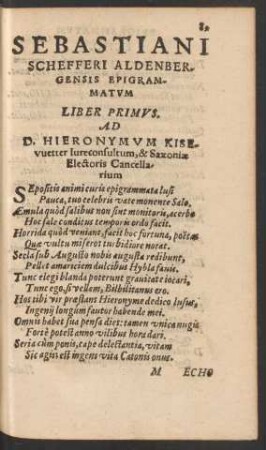 82
SEBASTIANI
SCHEFFERI ALDENBER-
GENSIS EPIGRAM-
MATVM
LIBER PRIMVS.
AD
D. HIERONYMVM KISE-
vuetter Iureconsultum, & Saxoniæ
Electoris Cancella-
rium
SEpositis animi curis epigrammata lusi
Pauca, tuo celebris vate monente Sala.
Æmula quòd salibus non sint monitoris, acerbo
Hoc sale conditus temporis ordo facit.
Horrida quòd veniant, facit hoc fortuna, poëtas
Quæ vultu miseros turbidiore notat.
Secla sub Augusto nobis augusta redibunt,
Pellet amariciem dulcibus Hybla fauis.
Tunc elegi blanda poterunt grauitate iocari,
Tunc ego, si vellem, Bilbilitanus ero.
Hos tibi vir præstans Hieronyme dedico lusus,
Ingenij longùm fautor habende mei.
Omnis habet sua pensa dies: tamen vnica nugis
Fortè potest anno vilibus hora dari.
Seria cùm ponis, cape delectantia, vitam
Sic agis: est ingens vita Catonis onus.
M ECHO